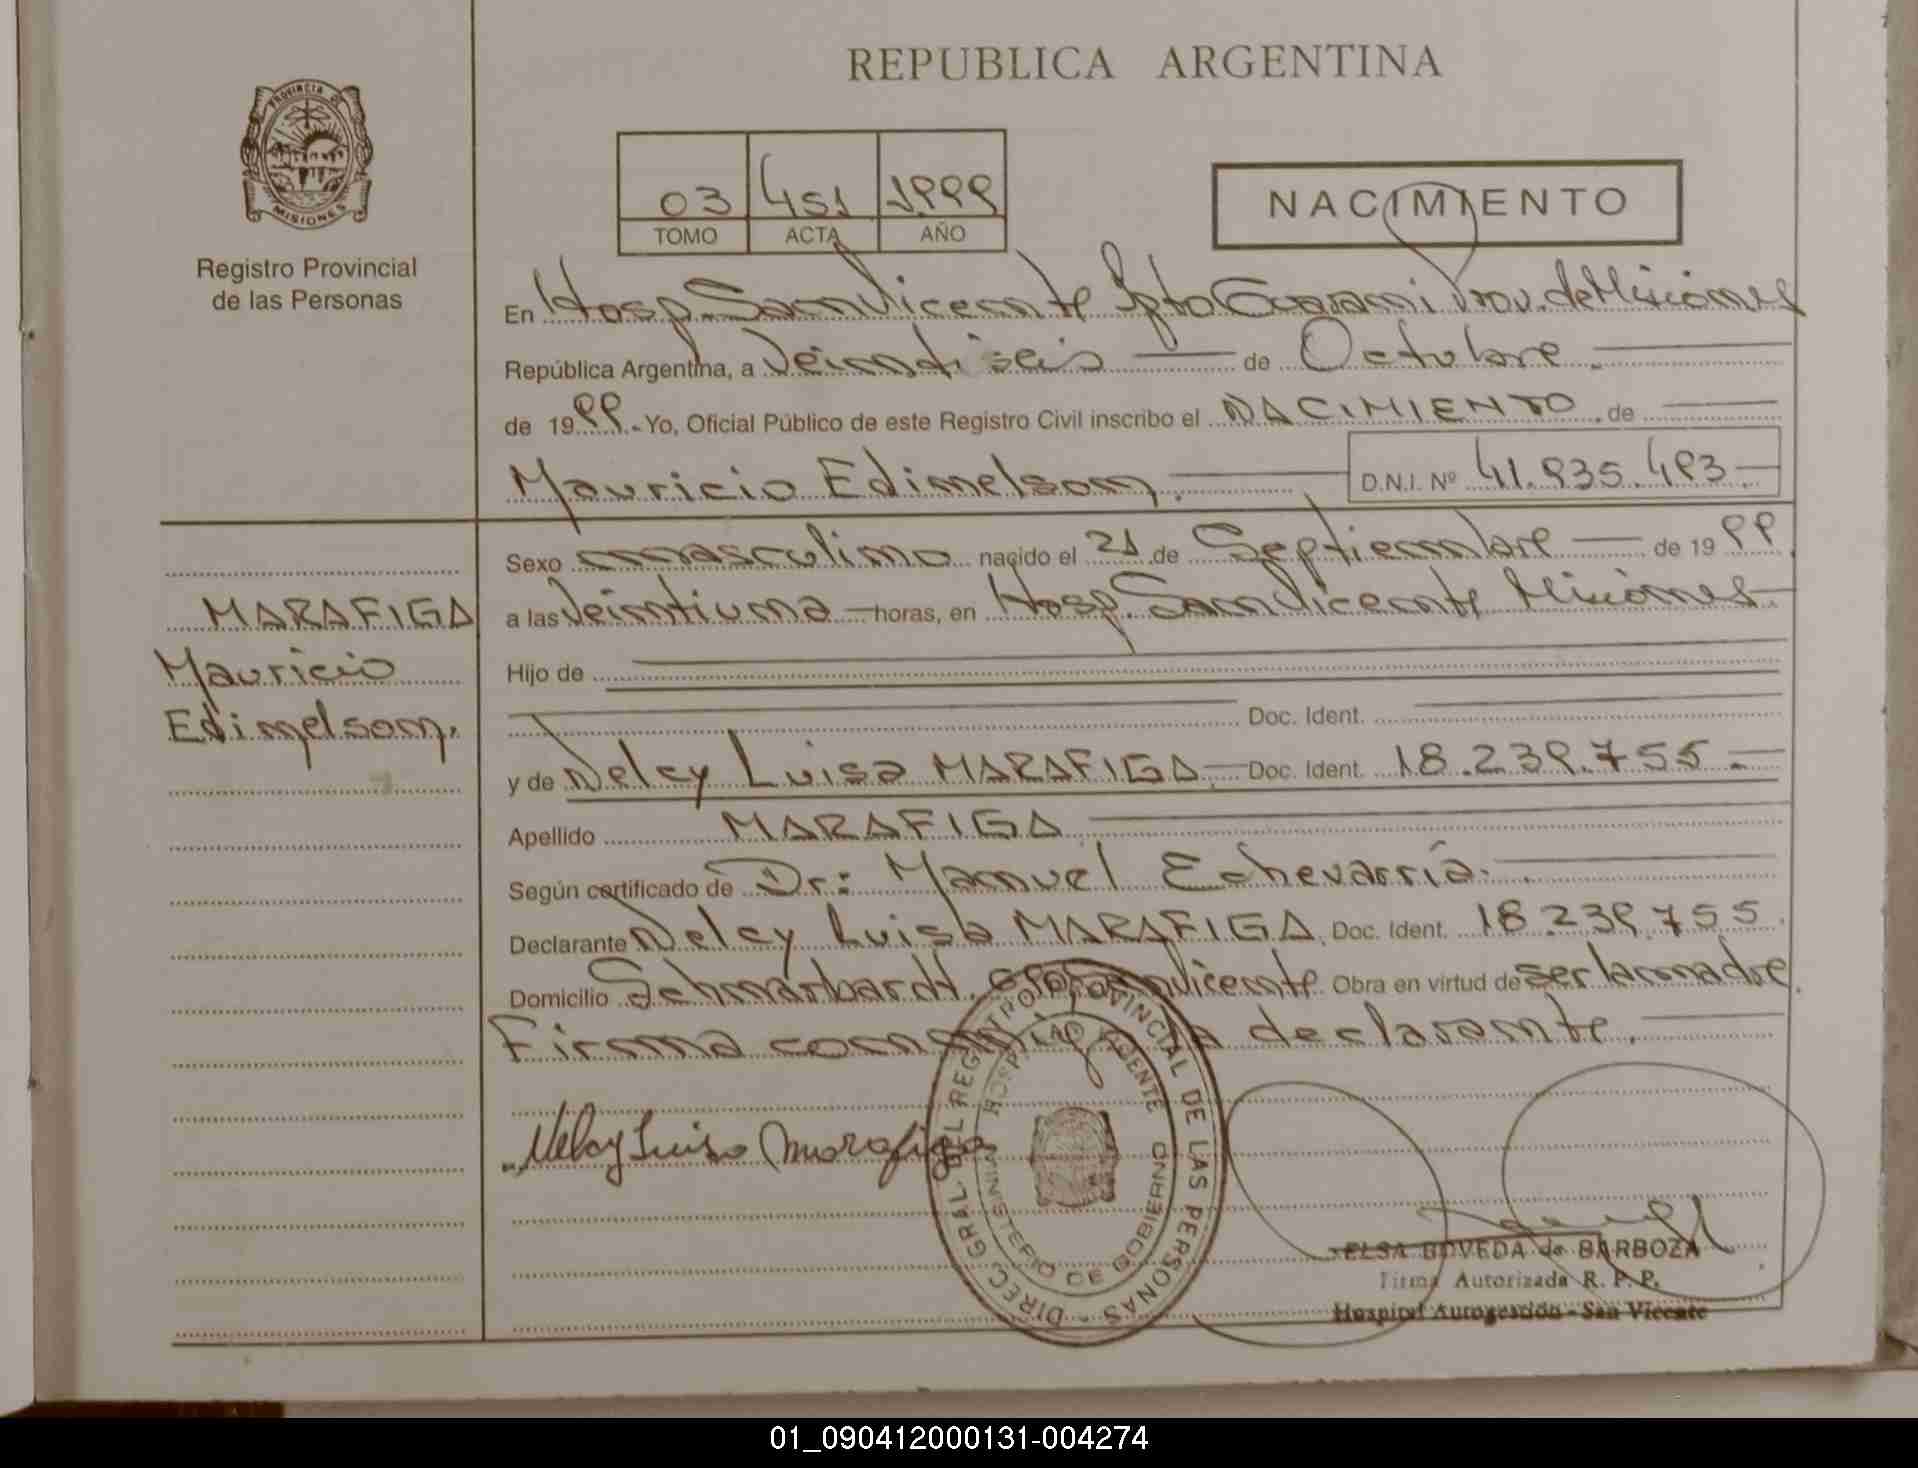 REPUBLICA ARGENTINA
PROVINCIA DE
MISIONES
Registro Provincial
de las Personas
03 451 1999
TOMO ACTA AÑO
NACIMIENTO
En Hosp. San Vicente Dpto Guarani Prov. de Misiones
República Argentina, a Veintiseis de Octubre
de 1999.- Yo, Oficial Público de este Registro Civil inscribo el NACIMIENTO de
Mauricio Edinelson. D.N.I. Nº 41.935.493
MARAFIGA
Mauricio
Edinelson.
Sexo masculino nacido el 21 de Septiembre de 1999
a las Veintiuna horas, en Hosp. San Vicente Misiones
Hijo de
Doc. Ident.
y de Nelcy Luisa MARAFIGA Doc. Ident. 18.239.755.-
Apellido MARAFIGA
Según certificado de Dr: Manuel Echevarría.
Declarante Nelcy Luisa MARAFIGA. Doc. Ident. 18.239.755.
Domicilio San Vicente Obra en virtud de ser la madre.
Firma la declarante.
Nelcy Luisa Marafiga
DIREC. GRAL. DEL REGISTRO PROVINCIAL DE LAS PERSONAS -
MINISTERIO DE GOBIERNO
ELSA BOVEDA de BARBOZA
Firma Autorizada R. P. P.
Hospital Autogestión - San Vicente
01_090412000131-004274